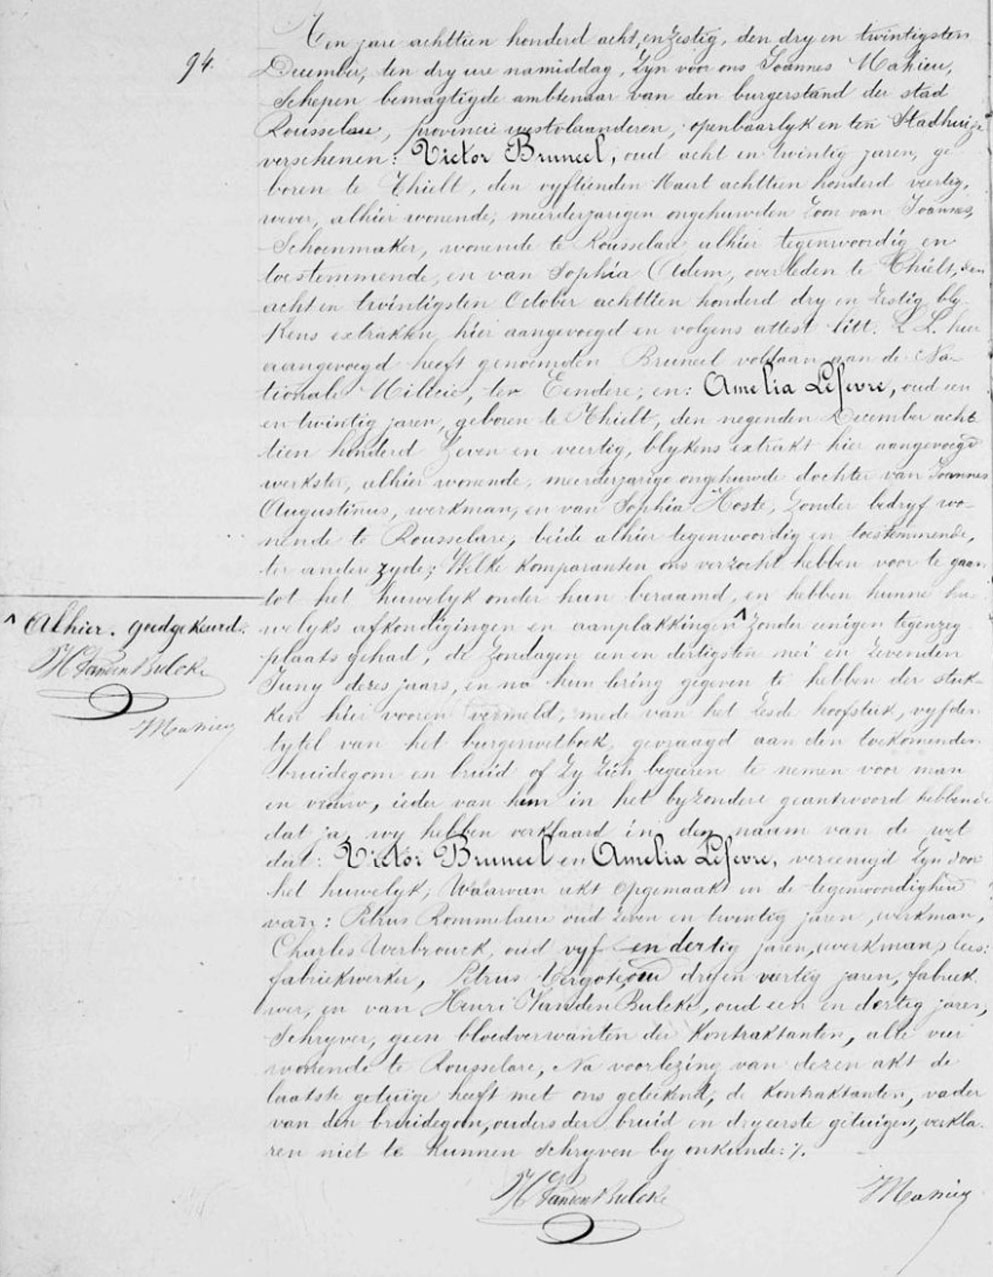 94.
Ten jare achttien honderd acht en zestig, den dry en twintigsten
December, ten dry ure namiddag, zyn voor ons Joannes Mahieu,
Schepen bemagtigde ambtenaar van den burgerstand der stad
Rousselare, provincie westvlaanderen, openbaarlyk en ten Stadhuize
verschenen: Victor Bruneel, oud acht en twintig jaren, ge
boren te Thielt, den vyftienden Maert achttien honderd veertig,
wever, alhier wonende, meerderjarigen ongehuwden zoon van Joannes,
Schoenmaker, wonende te Rousselare alhier tegenwoordig en
toestemmende, en van Sophia Odem, overleden te Thielt, den
acht en twintigsten October achttien honderd dry en zestig bly
kens extrakten, hier aangevoegd en volgens attest litt. L L. hier
aangevoegd heeft genoemden Bruneel voldaan aan de Na-
tionale Militie, ter Eendere; en: Amelia Lefevre, oud een
en twintig jaren, geboren te Thielt, den negenden December acht
tien honderd zeven en veertig, blykens extrakt hier aangevoegd
werkster, alhier wonende, meerderjarige ongehuwde dochter van Joannes
Augustinus, werkman, en van Sophia Hoste, zonder bedryf wo-
nende te Rousselare, beide alhier tegenwoordig en toestemmende,
ter andere zyde; Welke komparanten ons verzocht hebben voor te gaan
tot het huwelyk onder hun beraamd, en hebben hunne hu-
^ Alhier. goedgekeurd.
welyks afkondigingen en aanplakkingen ^ zonder eenigen tegenzeg
plaats gehad, de zondagen een en dertigsten mei en zevenden
H Vanden Bulcke
Juny dezes jaars, en na hun lezing gegeven te hebben der stuk-
ken hier vooren vermeld, mede van het zesde hoofstuk, vyfden
Mahieu
tytel van het burgerwetboek, gevraagd aan den toekomenden
bruidegom en bruid of zy zich begeeren te nemen voor man
en vrouw, ieder van hun in het byzondere geantwoord hebbende
dat ja, wy hebben verklaard in den naam van de wet
dat: Victor Bruneel en Amelia Lefevre, vereenigd zyn door
het huwelyk; Waarvan akt opgemaakt in de tegenwoordigheid
van: Petrus Rommelaere oud zeven en twintig jaren, werkman,
Charles Verbrouck, oud vyf en dertig jaren, werkman, lees:
fabriekwerker, Petrus Vergote, oud dry en veertig jaren, fabriek
wer, en van Henri Vanden Bulcke, oud een en dertig jaren,
Schryver, geen bloedverwanten der kontraktanten, alle vier
wonende te Rousselare, Na voorlezing van dezen akt de
laatste getuige heeft met ons geteekend, de kontraktanten, vader
van den bruidegom, ouders der bruid en dry eerste getuigen, verkla-
ren niet te kunnen schryven by onkunde: /.
H Vanden Bulcke Mahieu